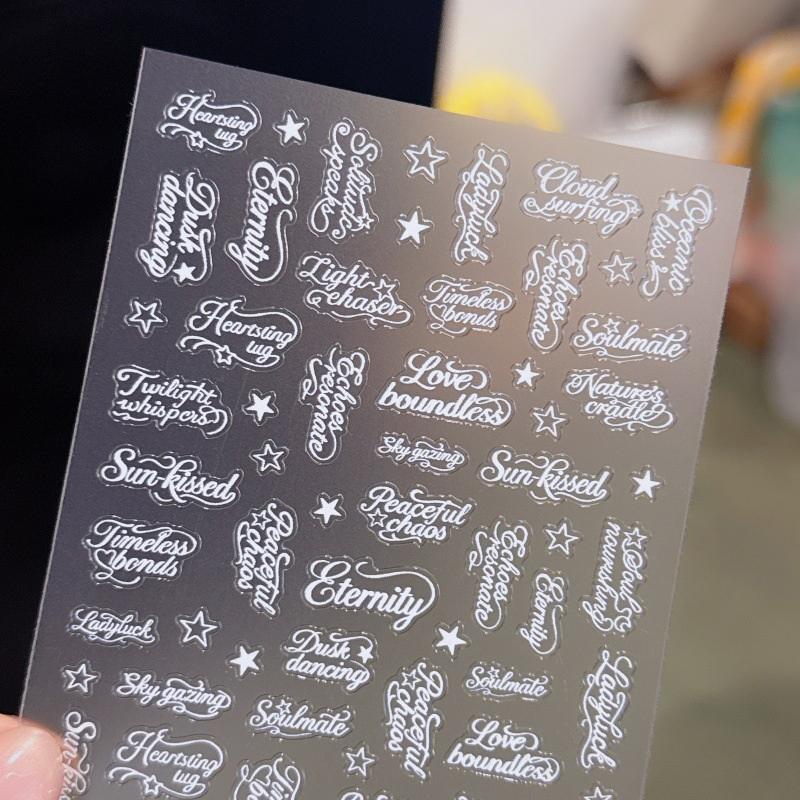 Heartsting
tug
Solitude
speaks
Ladyluck
Cloud
surfing
Oceanic
bliss
Dusk
dancing
Eternity
Light
chaser
Timeless
bonds
Echoes
resonate
Soulmate
Heartsting
tug
Twilight
whispers
Echoes
resonate
Love
boundless
Nature's
cradle
Sky gazing
Sun-kissed
Sun-kissed
Peaceful
chaos
Timeless
bonds
Peaceful
chaos
Eternity
Echoes
resonate
Eternity
Soul
nourishing
Ladyluck
Dusk
dancing
Sky gazing
Soulmate
Peaceful
chaos
Soulmate
Ladyluck
Love
boundless
Heartsting
tug